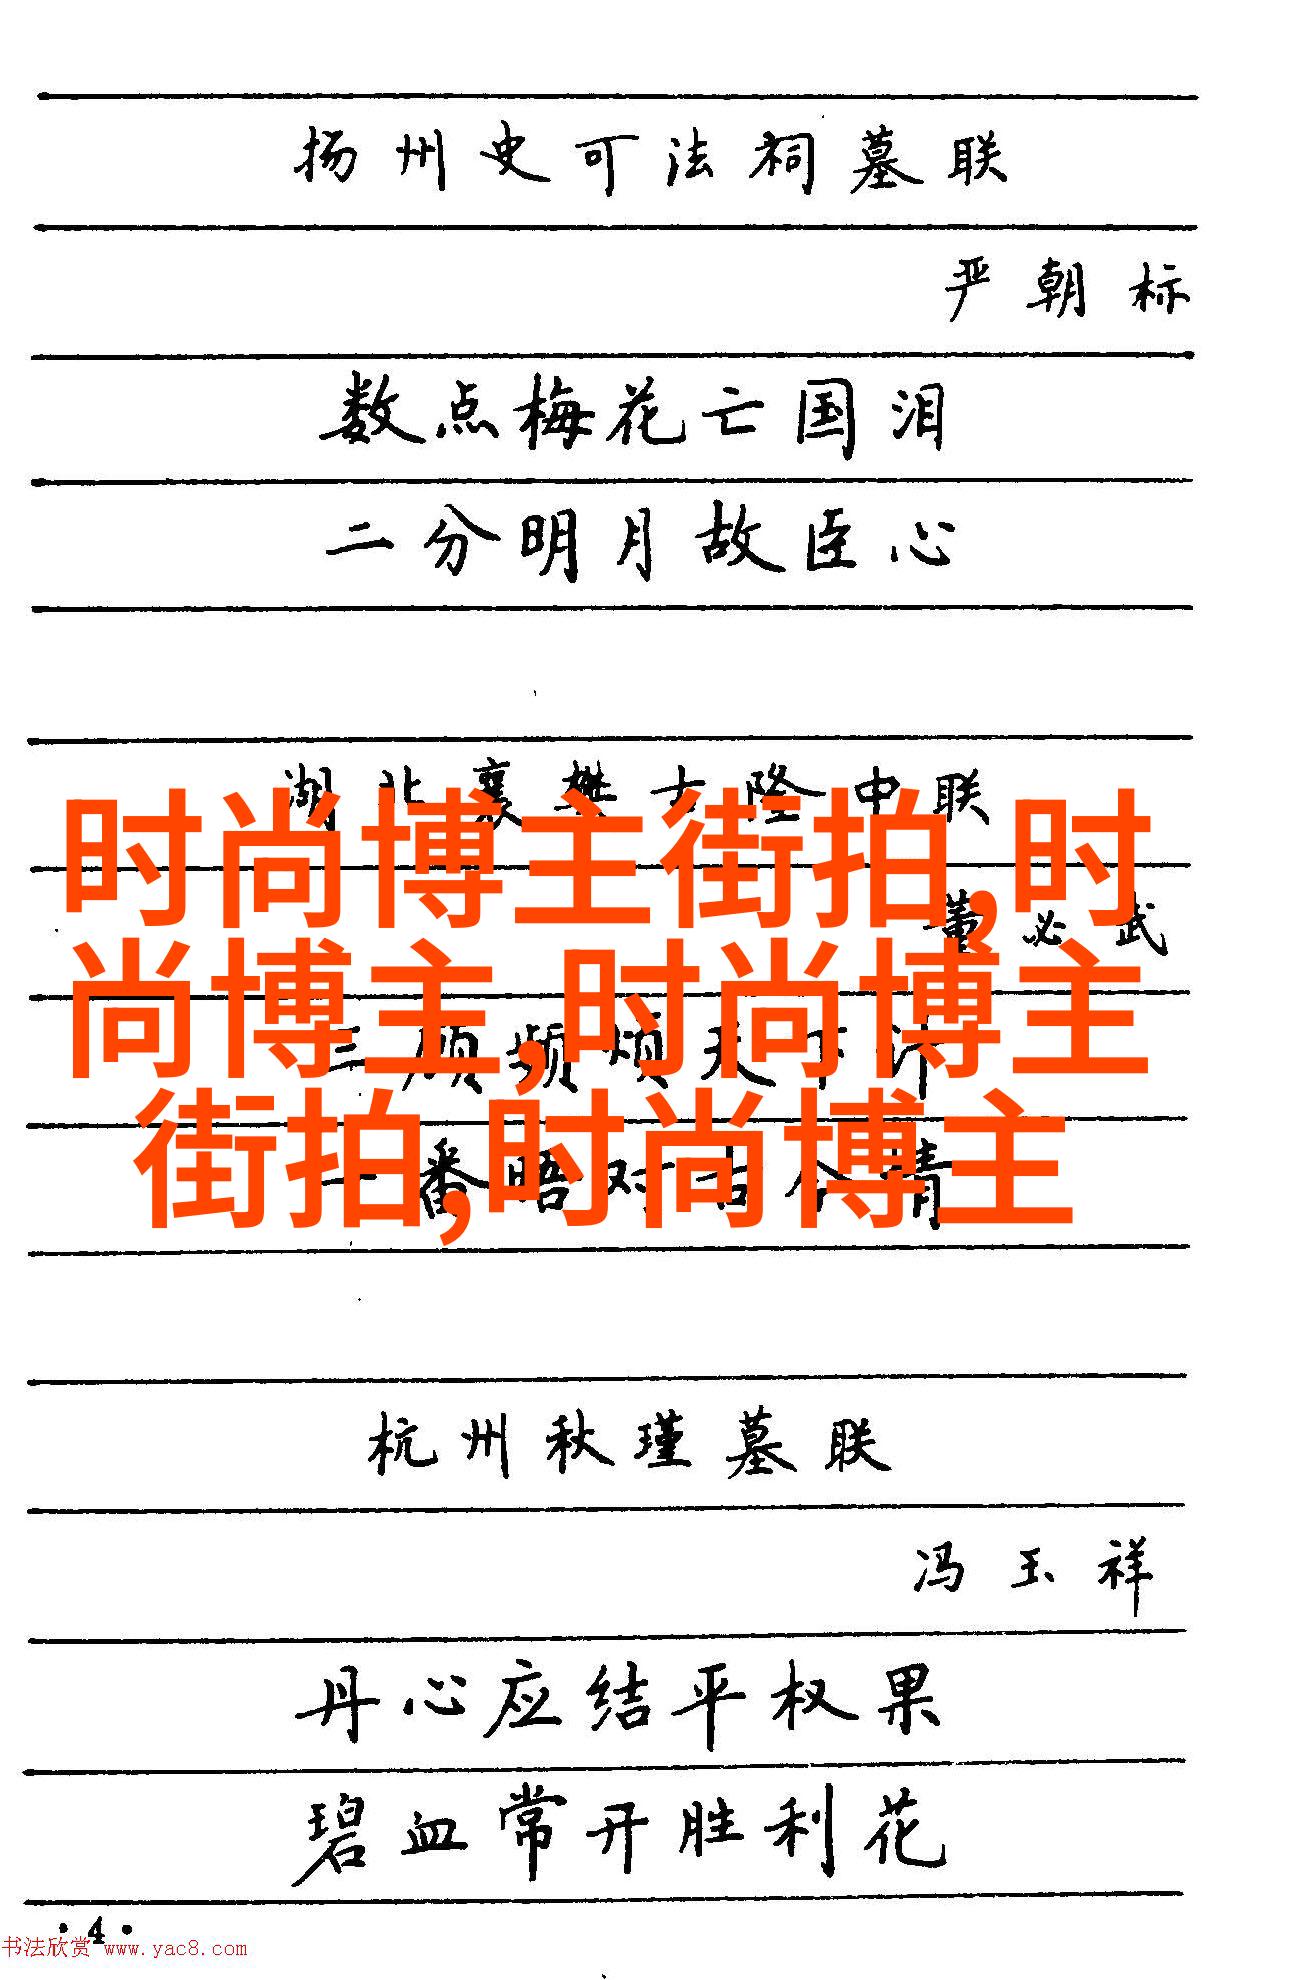 扬州史可法祠墓联
严朝标
数点梅花亡国泪
二分明月故臣心
湖北襄樊古隆中联
董必武
三顾频烦天下计
一番晤对古今情
时尚博主街拍,时
尚博主,时尚博主
街拍,时尚博主
杭州秋瑾墓联
冯玉祥
丹心应结平权果
碧血常开胜利花
·4·
书法欣赏 www.yac8.com